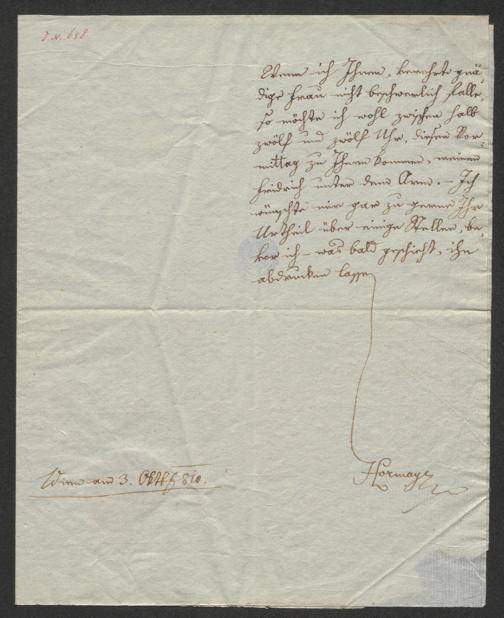 I. N. 698
Wenn ich Ihnen, verehrte gnä=
dige Frau nicht beschwerlich falle,
so möchte ich wohl zwischen halb
zwölf und zwölf Uhr, diesen Vor=
mittag zu Ihnen kommen, meinen
Heidrich unter dem Arm. – Ich
wünschte mir gar zu gerne Ihr
Urtheil über einige Stellen, be
vor ich – was bald geschieht, ihn
abdrucken lasse
Hormayr
Wien am 3.